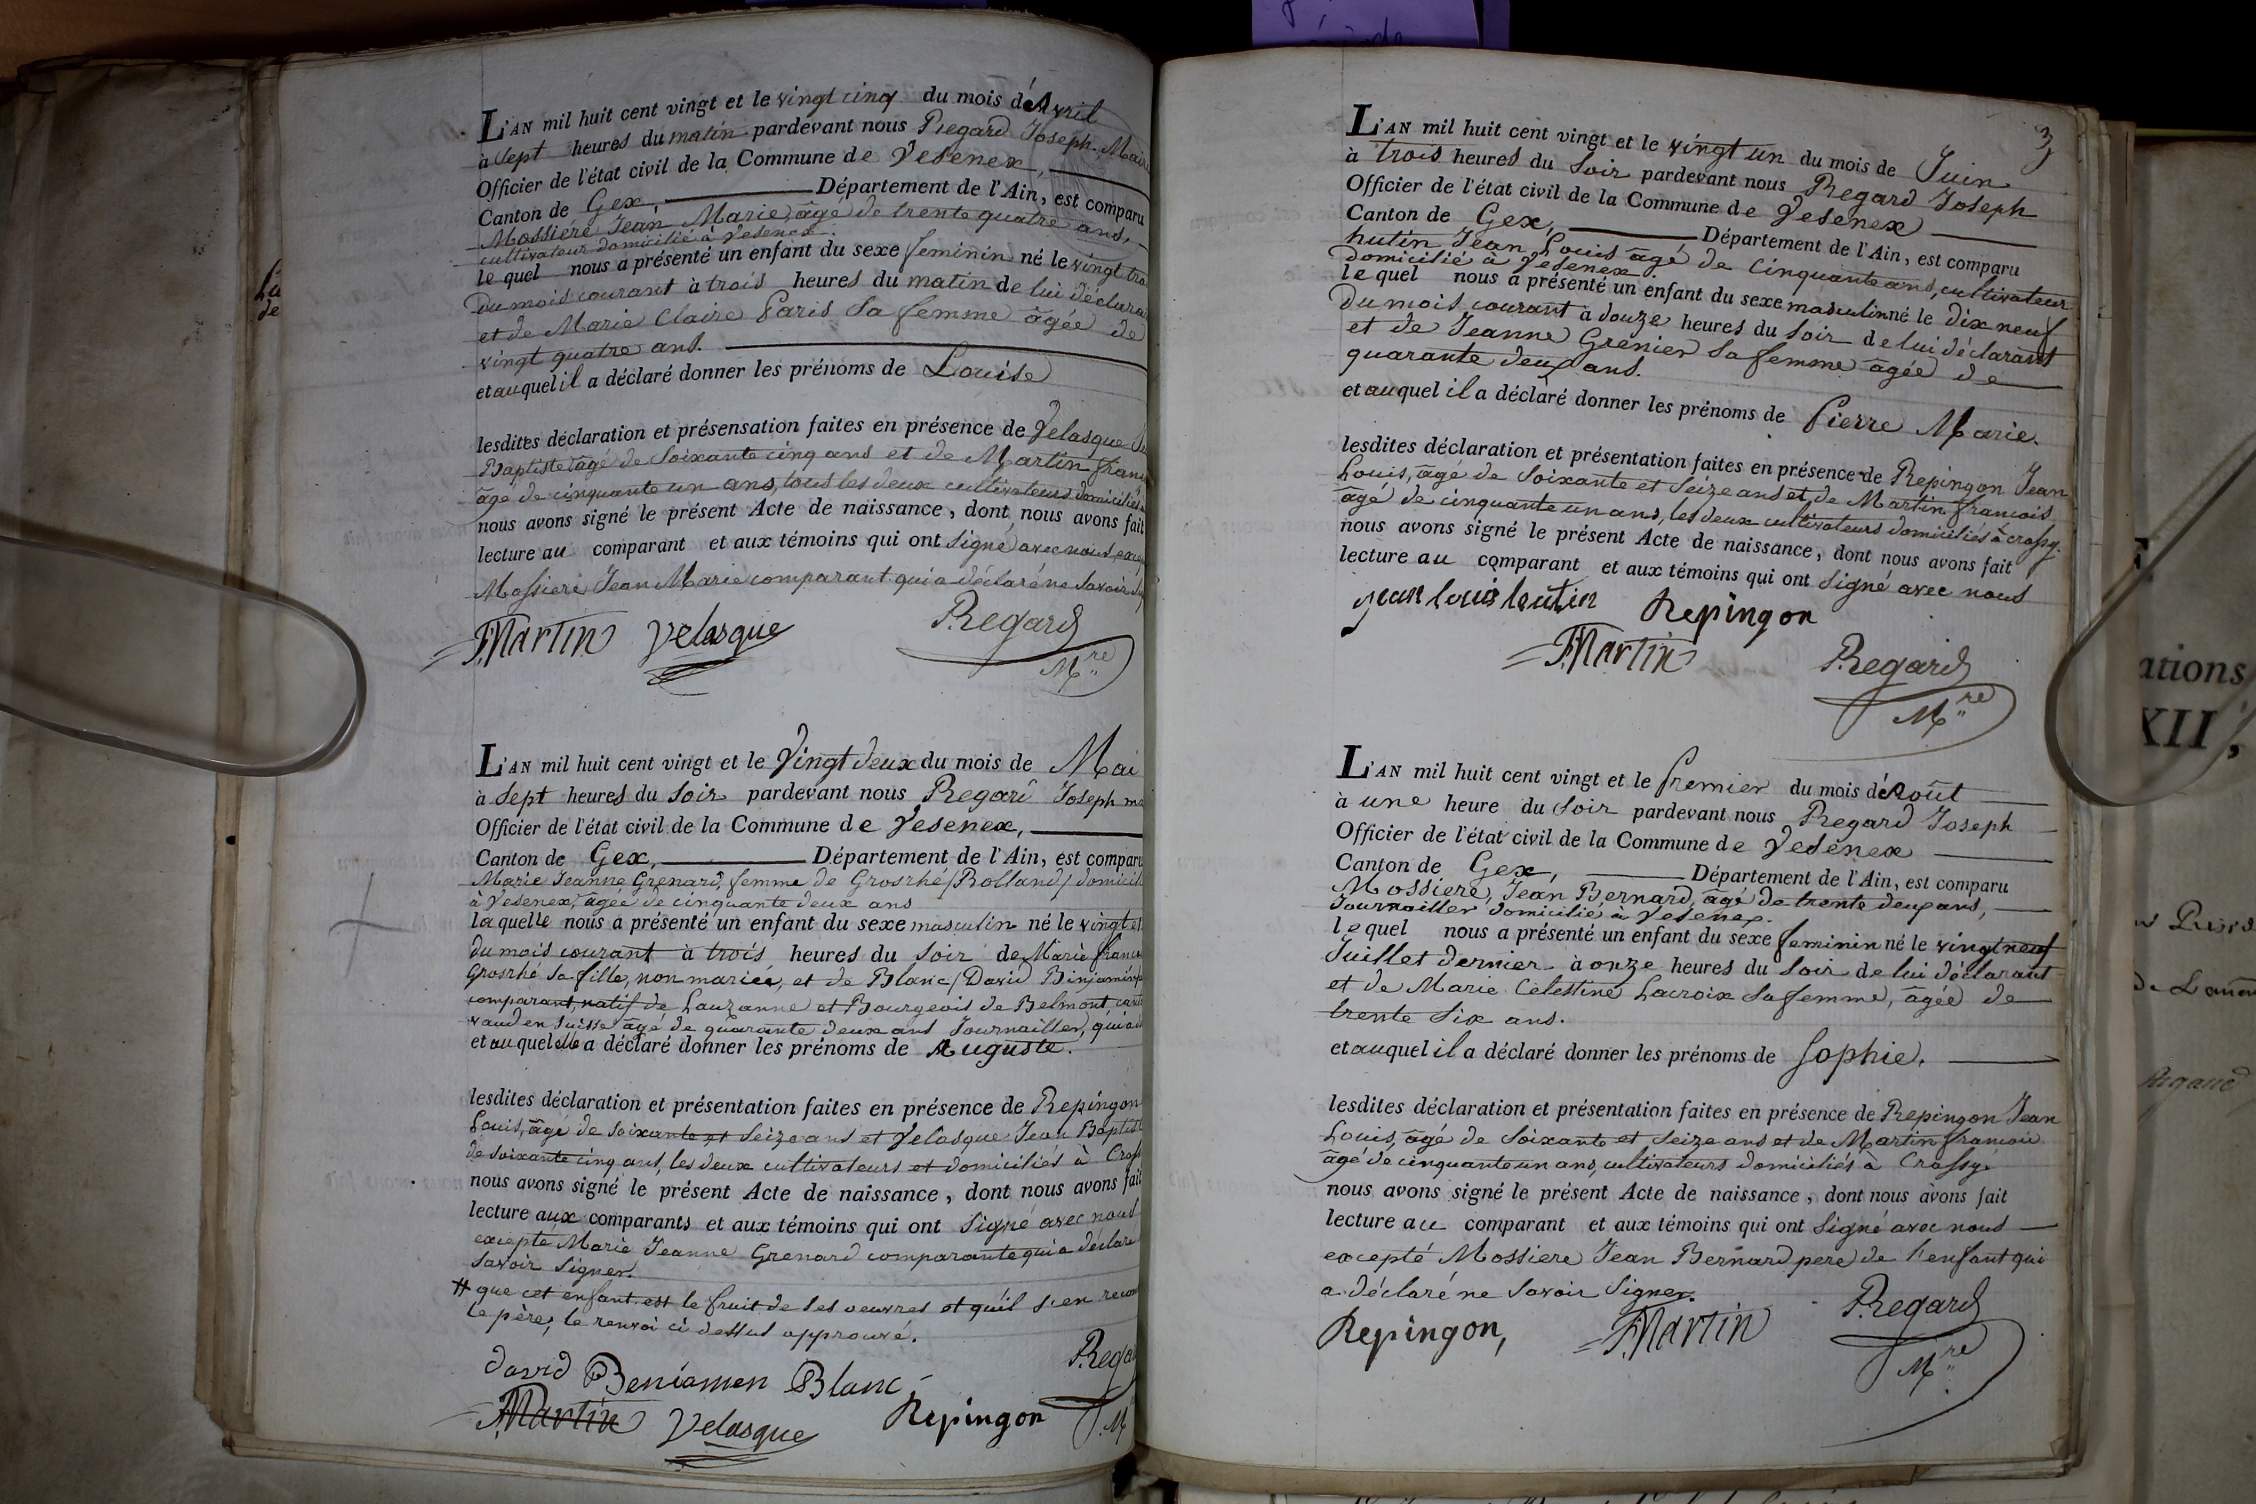 L'AN mil huit cent vingt et le vingt cinq du mois d'Avril
à Sept heures du matin pardevant nous Regard Joseph, Maire
Officier de l'état civil de la Commune de Vesenex,
Canton de Gex, Département de l'Ain, est comparu
Mossiere Jean Marie, âgé de trente quatre ans,
cultivateur domicilié à Vesenex.
le quel nous a présenté un enfant du sexe feminin né le vingt
du mois courant à trois heures du matin de lui déclarant
et de Marie Claire Paris Sa femme âgée de
vingt quatre ans.
et auquel il a déclaré donner les prénoms de Louise
lesdites déclaration et présensation faites en présence de Velasque
Baptiste âgé de Soixante cinq ans et de Martin
âgé de cinquante un ans, tous les deux cultivateurs domiciliés
nous avons signé le présent Acte de naissance, dont nous avons fait
lecture au comparant et aux témoins qui ont Signé avec nous
Mossiere Jean Marie comparant qui a déclaré ne Savoir
F. Martin Velasque Regard
Mre
L'AN mil huit cent vingt et le Vingt deux du mois de Mai
à Sept heures du Soir pardevant nous Regard Joseph
Officier de l'état civil de la Commune de Vesenex,
Canton de Gex, Département de l'Ain, est comparu
Marie Jeanne Grenard, femme de Grosrhé /Rolland/
à Vesenex, âgée de cinquante deux ans
laquelle nous a présenté un enfant du sexe masculin né le vingt
du mois courant à trois heures du Soir de Marie
Grosrhé Sa fille, non mariée, et de Blanc /David Binjamin/
comparant, natif de Lauzanne et Bourgeois de Belmont,
vaud en Suisse âgé de quarante deux ans Journailler, qui a
et auquel elle a déclaré donner les prénoms de Auguste.
lesdites déclaration et présentation faites en présence de Repingon
Louis, âgé de Soixante et Seize ans et Velasque Jean Baptiste
de Soixante cinq ans, les deux cultivateurs et domiciliés à
nous avons signé le présent Acte de naissance, dont nous avons fait
lecture aux comparants et aux témoins qui ont Signé avec nous
excepté Marie Jeanne Grenard comparante qui a déclaré
Savoir Signer.
# que cet enfant est le fruit de Ses oeuvres et qu'il S'en
le père, le renvoi ci dessus approuvé.
David Beniamen Blanc
F. Martin Velasque Repingon
3
L'AN mil huit cent vingt et le vingt un du mois de Juin
à trois heures du Soir pardevant nous Regard Joseph
Officier de l'état civil de la Commune de Vesenex
Canton de Gex, Département de l'Ain, est comparu
hutin Jean Louis âgé de Cinquante ans, cultivateur
domicilié à Vesenex.
le quel nous a présenté un enfant du sexe masculin né le dix neuf
du mois courant à douze heures du Soir de lui déclarant
et de Jeanne Grenier Sa femme âgée de
quarante deux ans.
et auquel il a déclaré donner les prénoms de Pierre Marie.
lesdites déclaration et présentation faites en présence de Repingon Jean
Louis, âgé de Soixante et Seize ans et de Martin francois
âgé de cinquante un ans, les deux cultivateurs domiciliés à crassy.
nous avons signé le présent Acte de naissance, dont nous avons fait
lecture au comparant et aux témoins qui ont Signé avec nous
jean louis hutin Repingon
F. Martin Regard
Mre
L'AN mil huit cent vingt et le premier du mois d'Août
à une heure du Soir pardevant nous Regard Joseph
Officier de l'état civil de la Commune de Vesenex
Canton de Gex, Département de l'Ain, est comparu
Mossiere, Jean Bernard, âgé de trente deux ans,
Journailler domicilié à Vesenex.
lequel nous a présenté un enfant du sexe feminin né le vingt neuf
Juillet dernier à onze heures du Soir de lui déclarant
et de Marie Celestine Lacroix Sa femme, âgée de
trente Six ans.
et auquel il a déclaré donner les prénoms de Sophie.
lesdites déclaration et présentation faites en présence de Repingon Jean
Louis, âgé de Soixante et Seize ans et de Martin francois
âgé de cinquante un ans, cultivateurs domiciliés à Crassy.
nous avons signé le présent Acte de naissance, dont nous avons fait
lecture au comparant et aux témoins qui ont Signé avec nous
excepté Mossiere Jean Bernard pere de l'enfant qui
a déclaré ne Savoir Signer.
Repingon, F. Martin Regard
Mre
XII,